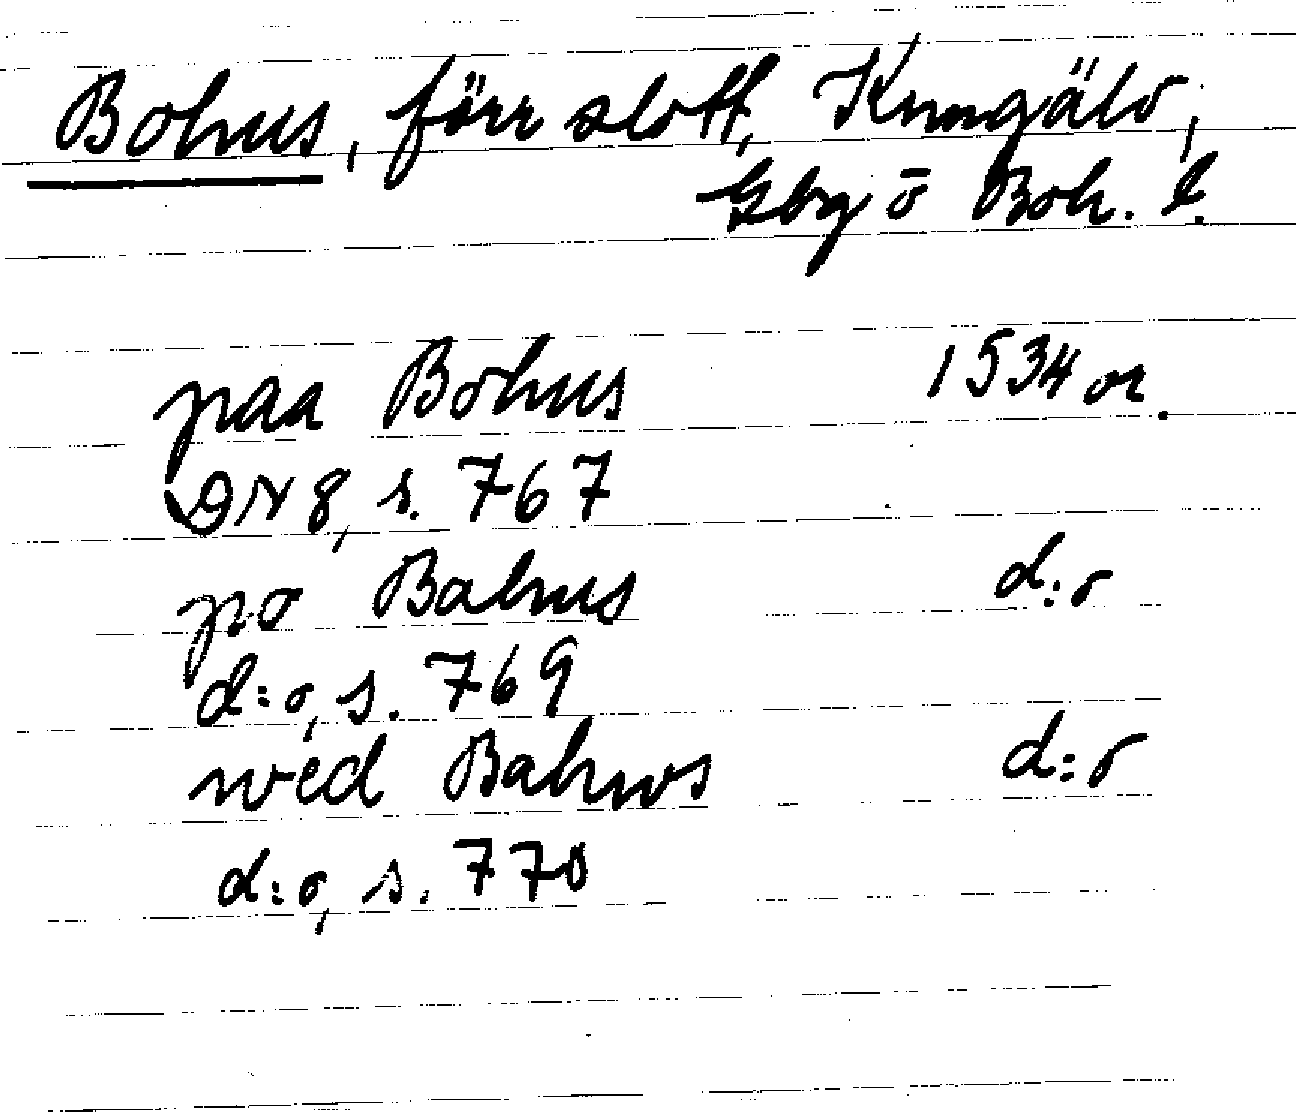 Bohus, förr slott, Kungälv,
Gbg o Boh. l.
paa Bohus 1534 or.
DN 8, s. 767
po Bahus d:o
d:o, s. 769
wed Bahws d:o
d:o, s. 770